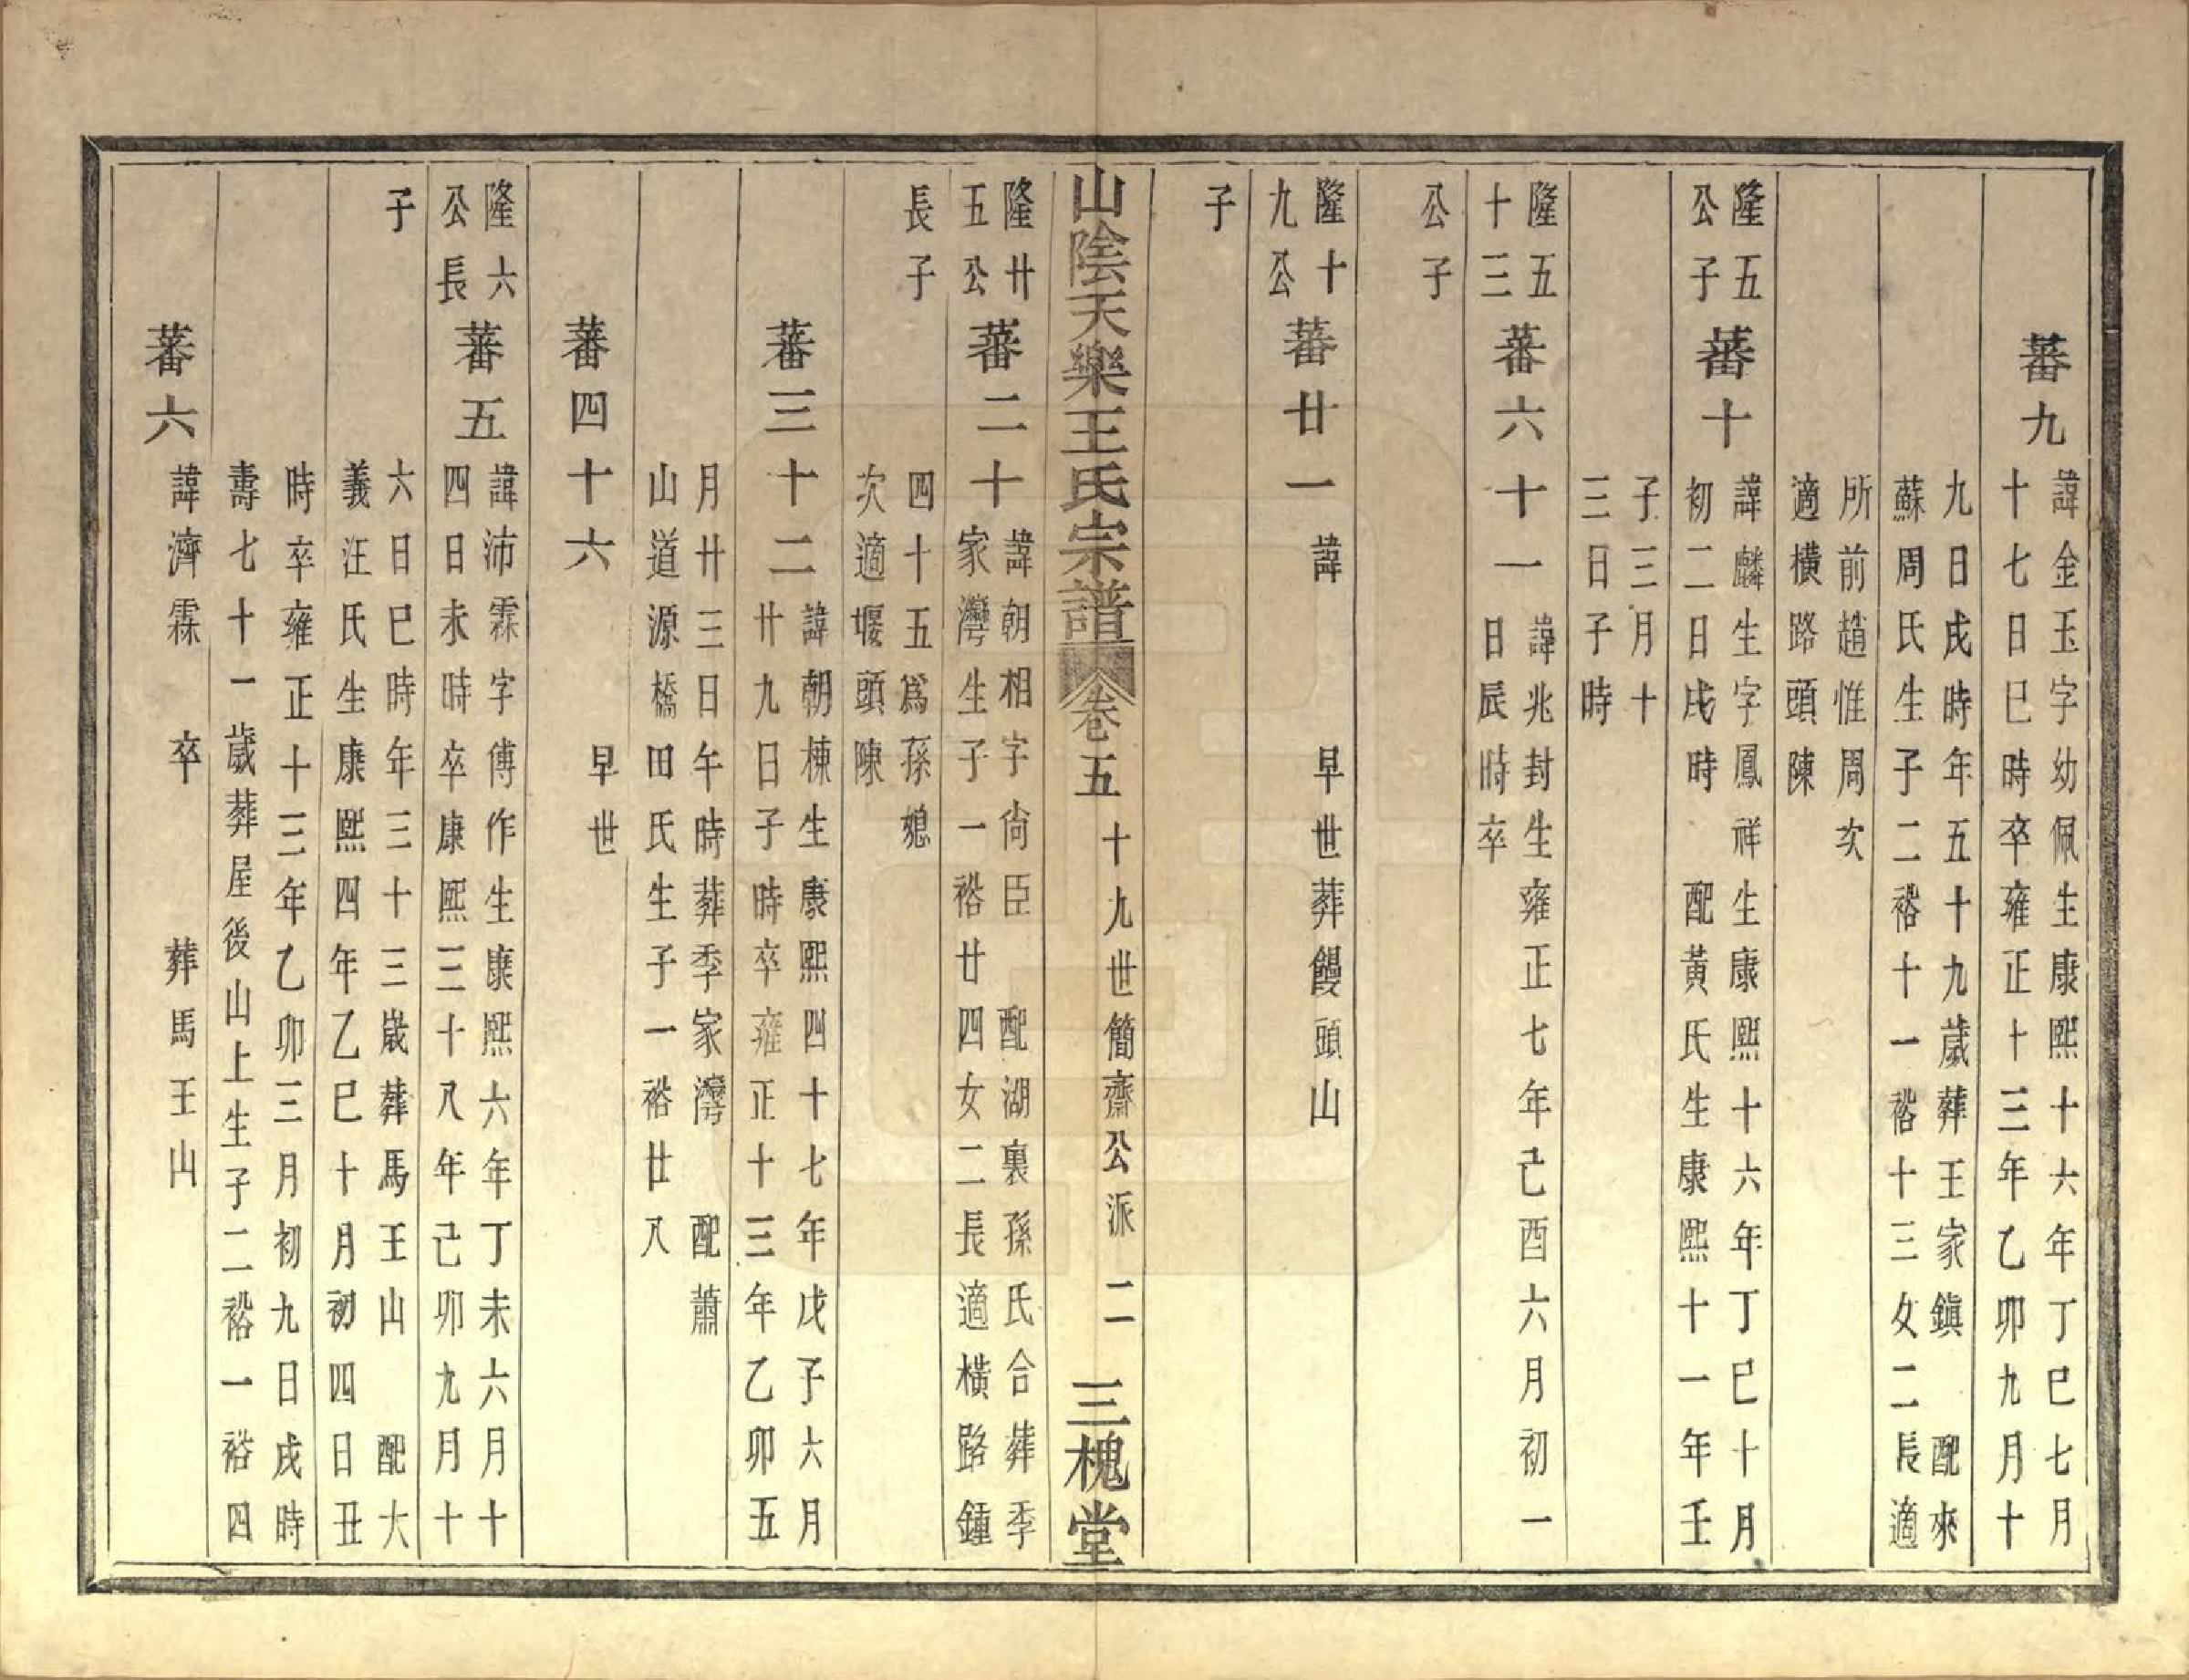 蕃九
諱金玉字幼佩生康熙十六年丁巳七月
十七日巳時卒雍正十三年乙卯九月十
九日戌時年五十九歲葬王家鎭　配來
蘇周氏生子二裕十一裕十三女二長適
所前趙惟周次
適横路頭陳
隆五
公子
蕃十
諱麟生字鳳祥生康熙十六年丁巳十月
初二日戌時　配黃氏生康熙十一年壬
子三月十
三日子時
隆五
十三
蕃六十一
諱兆封生雍正七年己酉六月初一
日辰時卒
公子
隆十
九公
蕃廿一
諱　早世葬饅頭山
子
山陰天樂王氏宗譜　卷五　十九世簡齋公派　二　三槐堂
隆廿
五公
蕃二十
諱朝相字尙臣　配湖裏孫氏合葬季
家灣生子一裕廿四女二長適橫路鍾
四十五爲孫媳
次適堰頭陳
長子
蕃三十二
諱朝棟生康熙四十七年戊子六月
廿九日子時卒雍正十三年乙卯五
月廿三日午時葬季家灣　配蕭
山道源橋田氏生子一裕廿八
蕃四十六
早世
隆六
公長
蕃五
諱沛霖字傅作生康熙六年丁未六月十
四日未時卒康熙三十八年己卯九月十
六日巳時年三十三歲葬馬王山　配大
義汪氏生康熙四年乙巳十月初四日丑
子
時卒雍正十三年乙卯三月初九日戌時
壽七十一歲葬屋後山上生子二裕一裕四
蕃六
諱濟霖　卒　葬馬王山